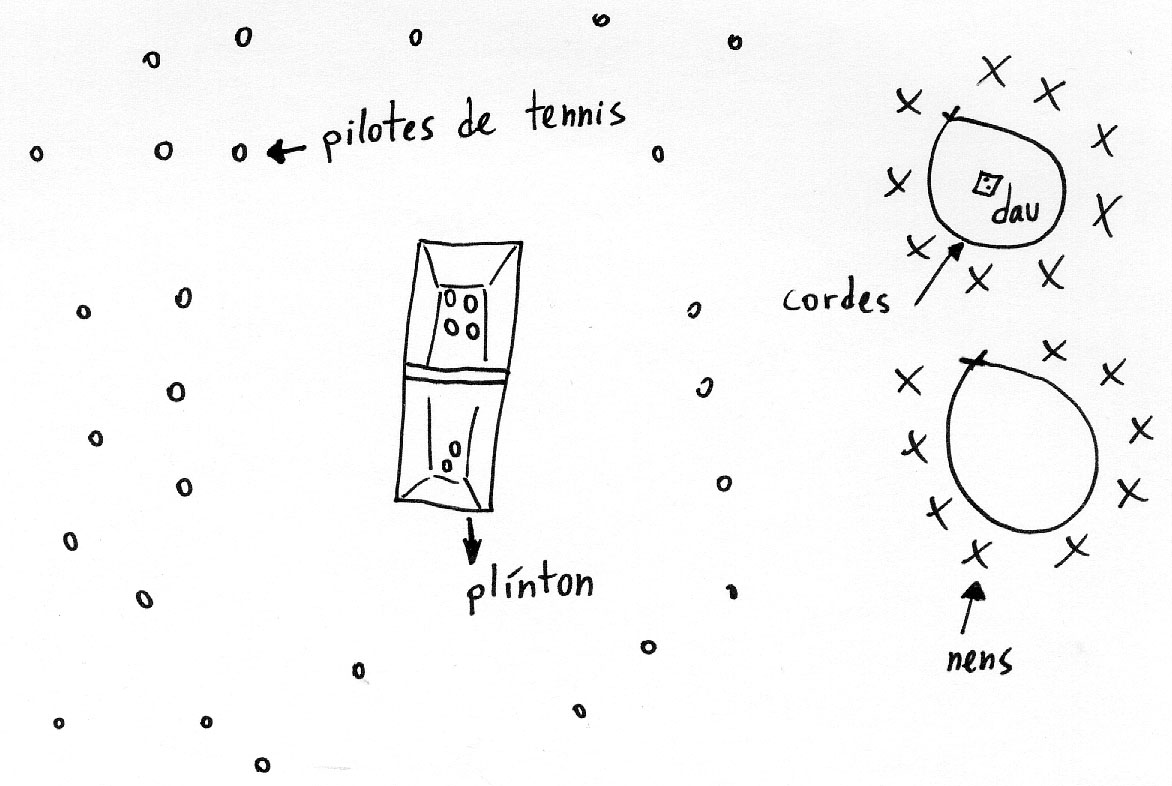 pilotes de tennis
dau
cordes
plínton
nens